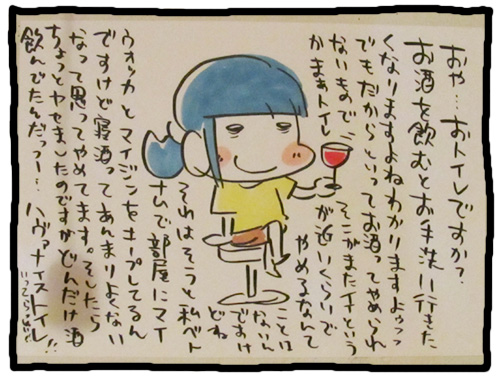 おや…おトイレですか？
お酒を飲むとお手洗い行きた
くなりますよねわかりますよゥゥ
でもだからといってお酒ってやめられ
ないもので…そこがまたイイという
かまぁトイレが近いくらいで
やめるなんて
ことは
ないん
ですけ
どね
それはそうと私ベト
ナムで部屋にマイ
ウォッカとマイジンをキープしてるん
ですけど寝酒ってあんまりよくない
なって思ってやめてます。そしたら
ちょっとヤセましたのですがどんだけ酒
飲んでたんだっつー…ハヴァナイストイレ!!
いってらっしゃい!!